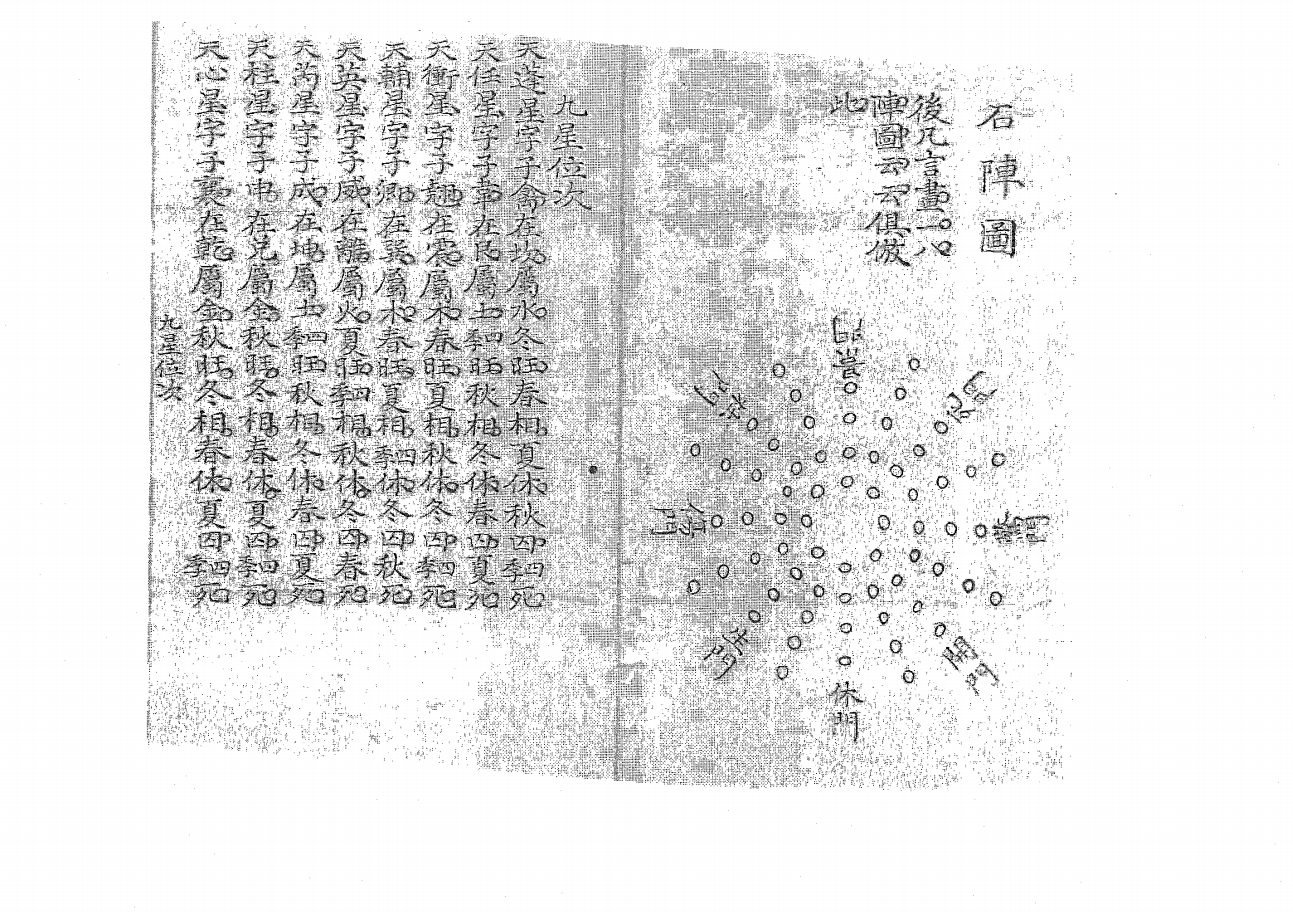 石陣圖
後凡言畫一八
陣圖云云俱倣
此
景門
死門
驚門
開門
休門
生門
傷門
杜門
九星位次
天蓬星字子禽在坎屬水冬旺春相夏休秋囚四季死
天任星字子韋在艮屬土四季旺秋相冬休春囚夏死
天衝星字子翹在震屬木春旺夏相秋休冬囚四季死
天輔星字子卿在巽屬木春旺夏相四季休冬囚秋死
天英星字子威在離屬火夏旺四季相秋休冬囚春死
天芮星字子成在坤屬土四季旺秋相冬休春囚夏死
天柱星字子申在兌屬金秋旺冬相春休夏囚四季死
天心星字子襄在乾屬金秋旺冬相春休夏囚四季死
九星位次